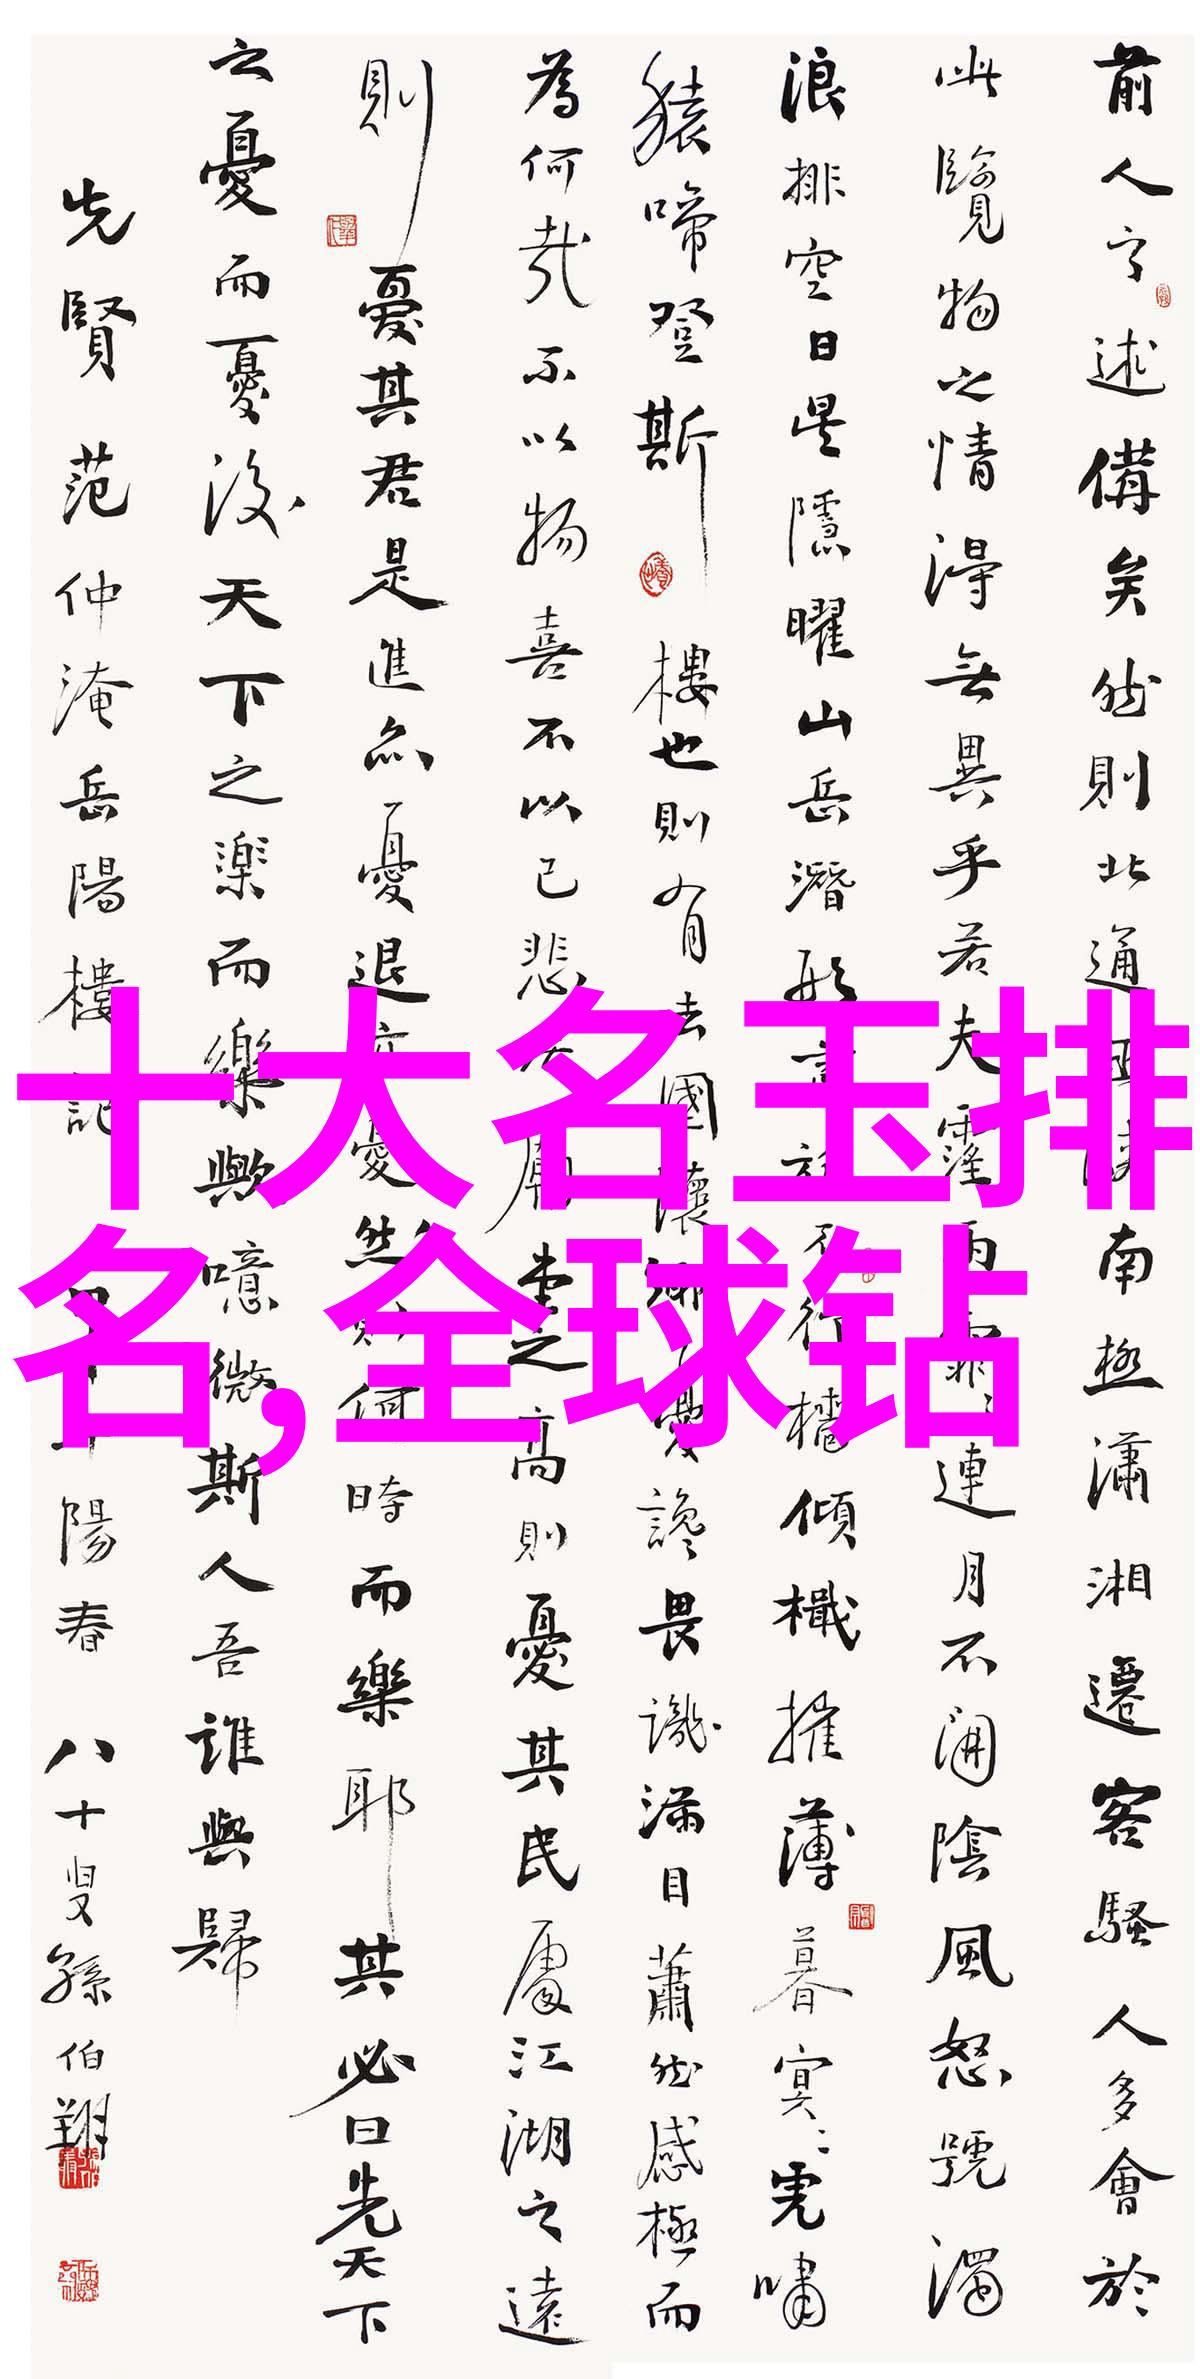 前人之述備矣然則北通巫峽南極瀟湘遷客騷人多會於
此覽物之情得無異乎若夫霪雨霏〻連月不開陰風怒號濁
浪排空日星隱曜山岳潛形商旅不行檣傾檝摧薄暮冥〻虎嘯
猿啼登斯樓也則有去國懷鄉憂讒畏譏滿目蕭然感極而
為何哉不以物喜不以己悲居廟堂之高則憂其民處江湖之遠
則憂其君是進亦憂退亦憂然則何時而樂耶其必曰先天下
之憂而憂後天下之樂而樂歟噫微斯人吾誰與歸
先賢范仲淹岳陽樓記 甲午陽春 八十叟孫伯翔
十大名玉排
名,全球钻